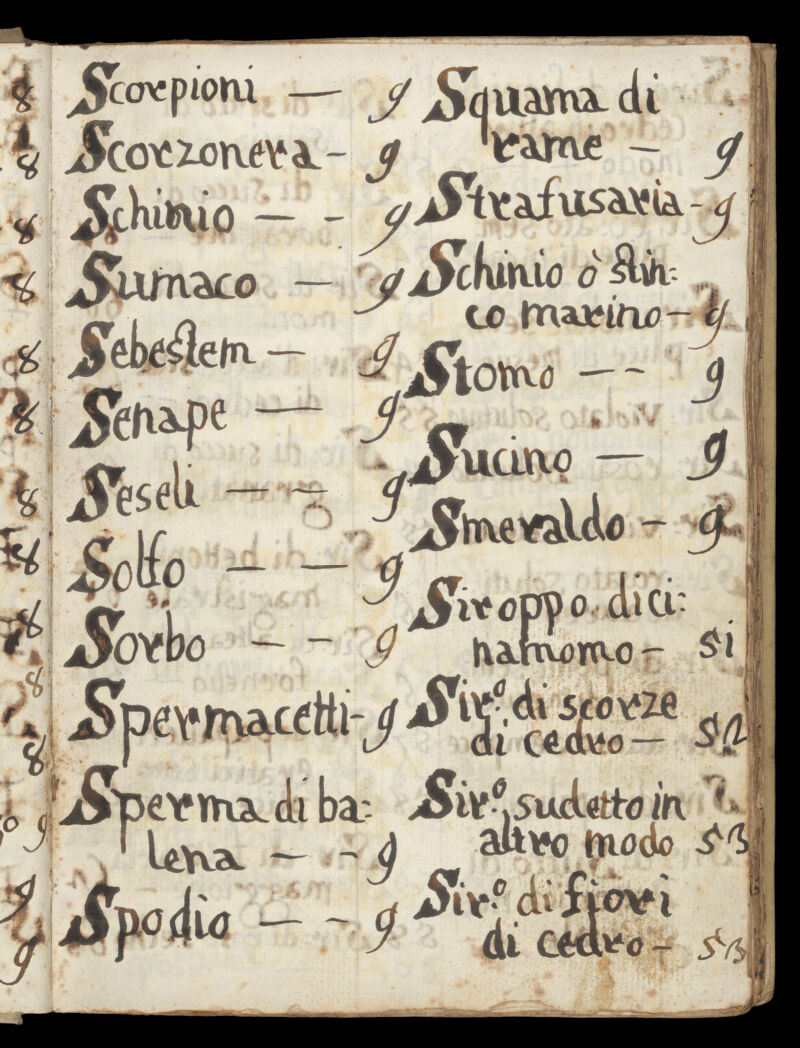 Scorpioni — 9
Scorzonera - 9
Schinio — - 9
Sumaco — 9
Sebestem — 9
Senape — 9
Seseli — - 9
Solfo — — 9
Sorbo — - 9
Spermacetti - 9
Sperma di ba:
lena — - 9
Spodio — - 9
Squama di
rame — 9
Strafusaria - 9
Schinio ò stin:
co marino - 9
Stomo — - 9
Sucino — 9
Smeraldo — 9
Siroppo di ci:
namomo — 51
Sir.º di scorze
di cedro — 52
Sir.º sudetto in
altro modo 53
Sir.º di fiori
di cedro — 53